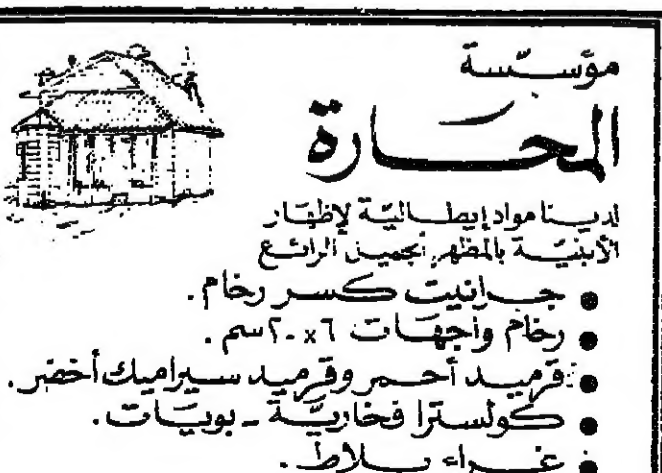 مؤسسة
المحارة
لدينا مواد إيطالية لإظهار
الأبنية بالمظهر الجميل الرائع
• جرانيت كسر رخام .
• رخام واجهات ٦ x ٢٠ سم .
• قرميد أحمر وقرميد سيراميك أخضر .
• كولسترا فخارية - بويات .
• غراء بلاط .